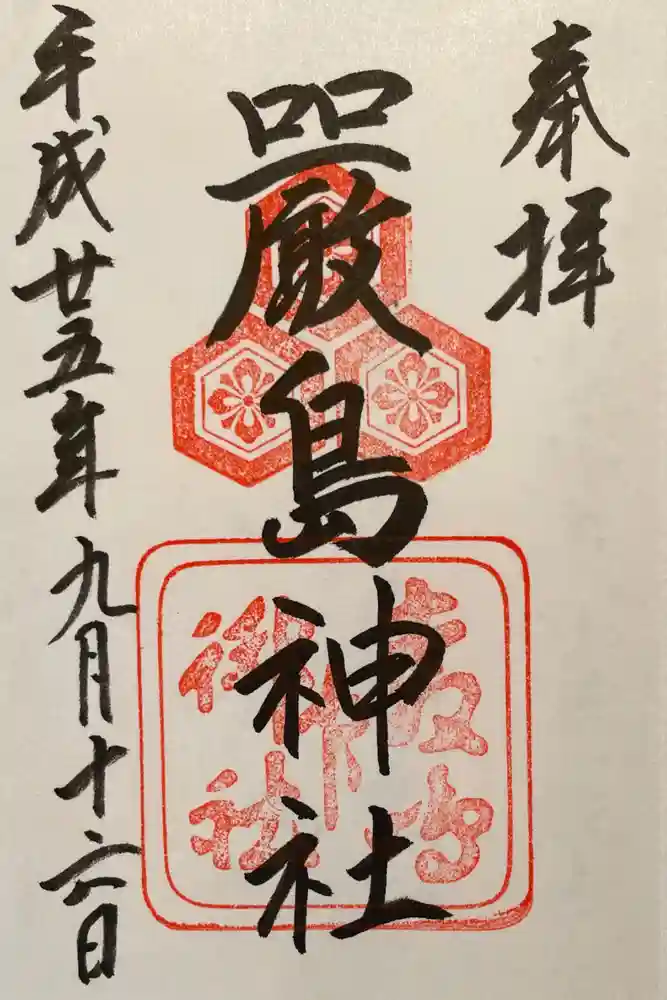 奉拝
嚴島神社
平成廿五年九月十六日